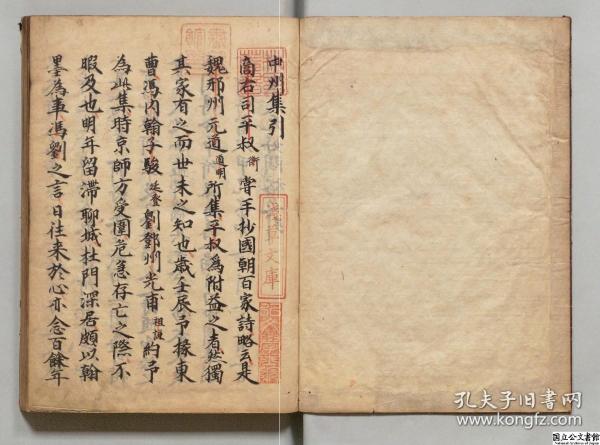 中州集引
商右司平叔衡嘗手抄國朝百家詩略云是
魏邢州元道道明所集平叔為附益之者然獨
其家有之而世未之知也歲壬辰予掾東
曹馮内翰子駿延登劉鄧州光甫祖謙約予
為此集時京師方受圍危急存亡之際不
暇及也明年留滯聊城杜門深居頗以翰
墨為事馮劉之言日往来於心亦念百餘年
文庫
孔夫子旧书网
www.kongfz.com
国立公文書館
National Archives of Japan